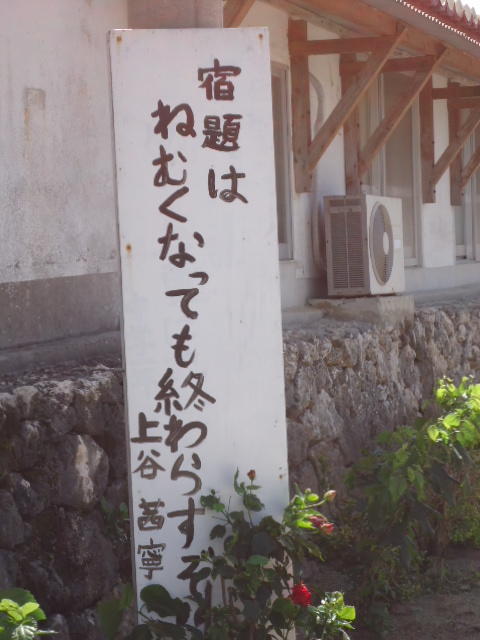 宿題は
ねむくなっても終わらすぞ
上谷 茜寧